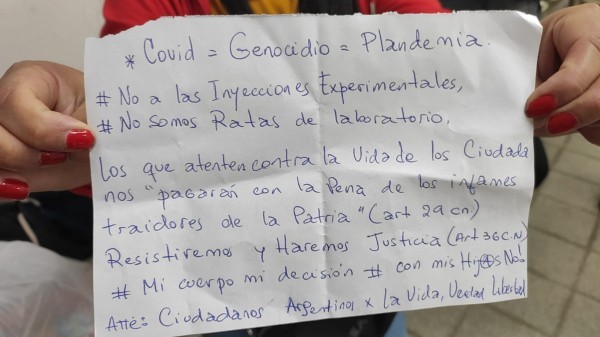 * Covid = Genocidio = Plandemia.
# No a las Inyecciones Experimentales,
# No somos Ratas de laboratorio,
Los que atenten contra la vida de los Ciudada
nos "pagarán con la Pena de los infames
traidores de la Patria" (art 29 cn)
Resistiremos y Haremos Justicia (Art 36 C.N)
# Mi cuerpo mi decisión # con mis Hij@s No!
Atte: Ciudadanos Argentinos x La Vida, Verdad Libertad